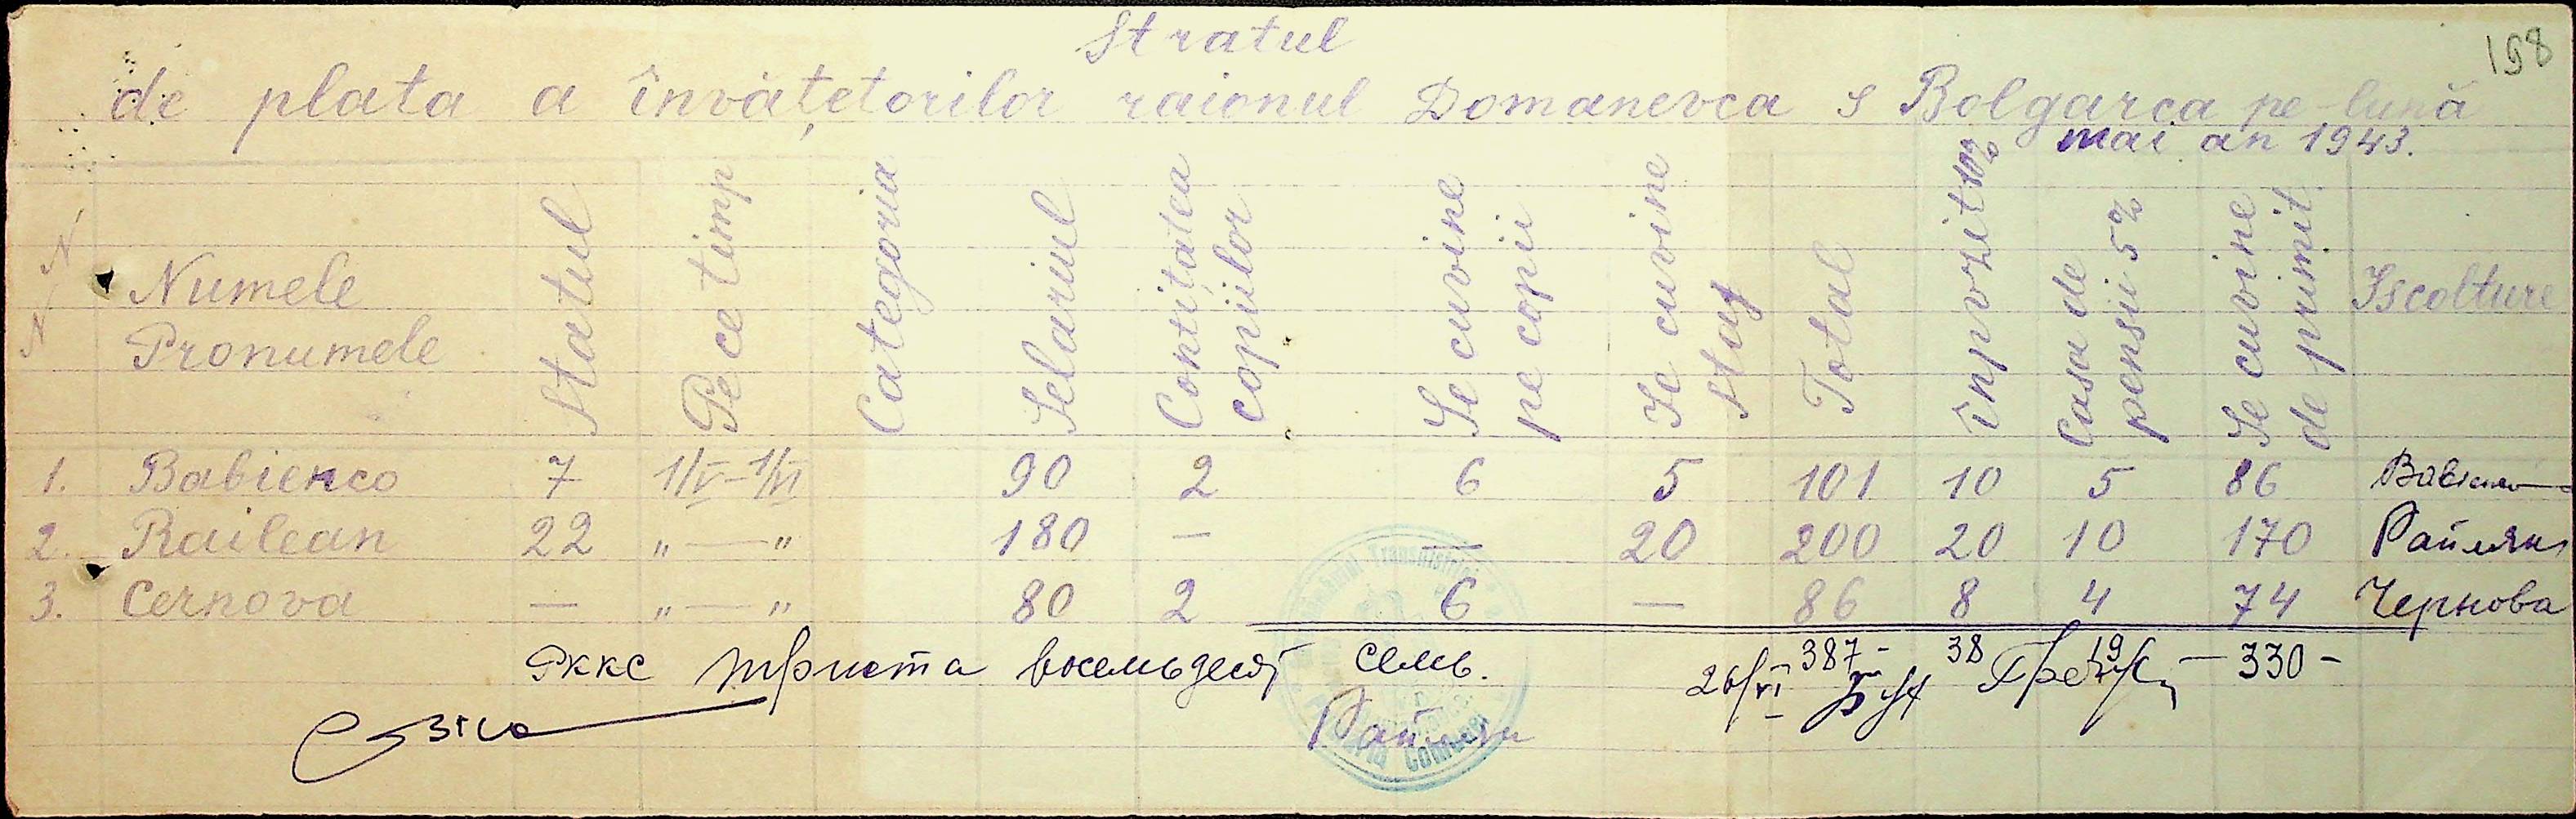 198
Stratul
de plata a învățetorilor raionul Domanevca s Bolgarca pe lună
mai an 1943.
N N Numele Pronumele Statul Pe ce timp Categoria Selariul Contițatea copiilor Se cuvine pe copii Se cuvine staj Total înpvozit 10% Casa de pensii 5% Se cuvine de primit Iscolture
1. Babienco 7 1/V-1/VI 90 2 6 5 101 10 5 86
2. Railean 22 „—„ 180 — — 20 200 20 10 170 Райлян
3. Cernova — „—„ 80 2 6 — 86 8 4 74 Чернова
387- 38 19 -330-
Рккс триста восемьдесят семь.
26/VI
Райлян